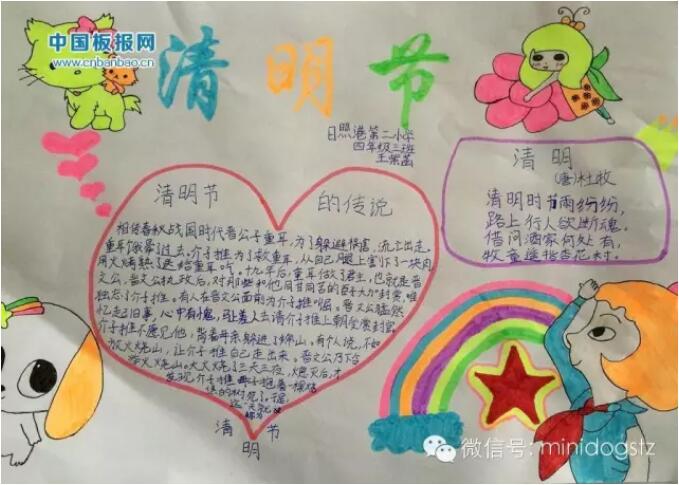 中国板报网
www.cnbanbao.cn
清明节
日照港第二小学
四年级三班
清明节 的传说
相传春秋战国时代晋公子重耳,为了躲避祸害,流亡出走。
重耳饿晕了过去。介子推为了救重耳,从自己腿上割下了一块肉
用火烤熟了送给重耳吃。十九年后,重耳做了君主,也就是晋
文公。晋文公执政后,对那些和他同甘同苦的臣大加封赏,唯
独忘了介子推。有人在晋文公面前为介子推
忆起旧事,心中有愧,马上差人去请介子推上朝受赏封官。
介子推不愿见他,背着母亲躲进了绵山。有个人说,不如
放火烧山,让介子推自己走出来。晋文公乃下令
大火烧了三天三夜,熄灭后,才
发现介子推
清明节
清明
(唐)杜牧
清明时节雨纷纷,
路上行人欲断魂。
借问酒家何处有,
牧童遥指杏花村。
微信号: minidogstz